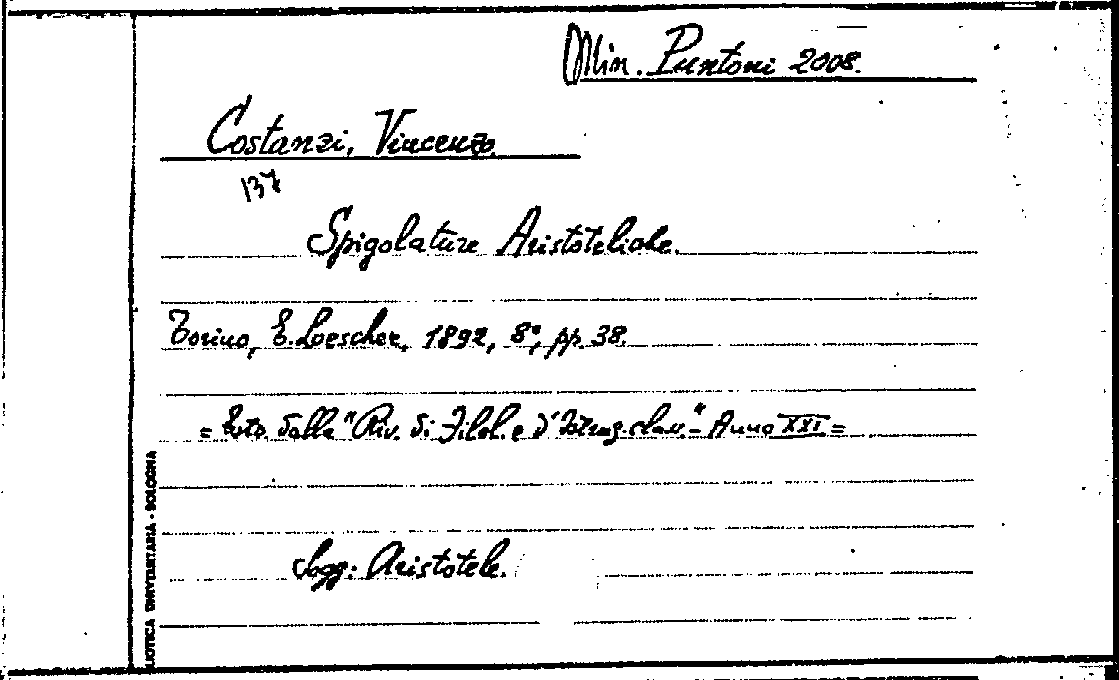 Min. Puntoni 2008.
Costanzi, Vincenzo.
137
Spigolature Aristoteliche.
Torino, E. Loescher, 1892, 8°, pp. 38.
= Estr. dalla "Riv. di Filol. e d'Istruz. class." - Anno XXI =
Sogg: Aristotele.
BLIOTICA UNIVERSITARIA - BOLOGNA